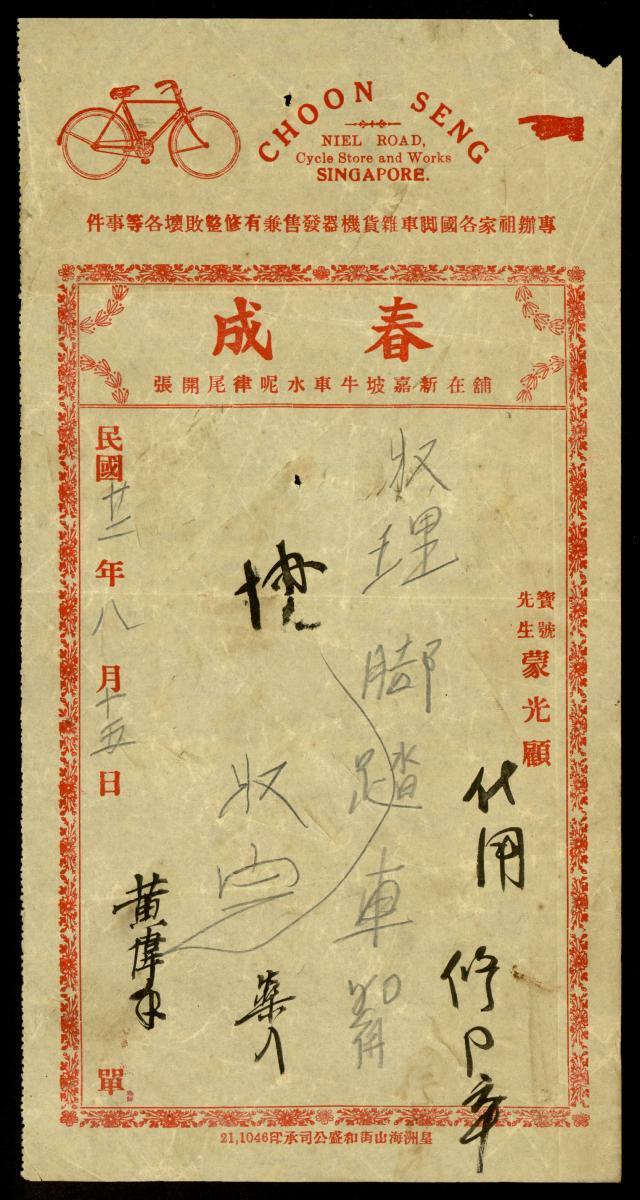 CHOON SENG
NIEL ROAD,
Cycle Store and Works
SINGAPORE.
專辦祖家各國脚車雜貨機器發售兼有修整敗壞各等事件
春成
舖在新嘉坡牛車水呢律尾開張
寶號
先生
蒙光顧
代用
修
理脚踏車
收
民國廿二年八月十五日
單
星洲海山街和盛公司承印21,1046